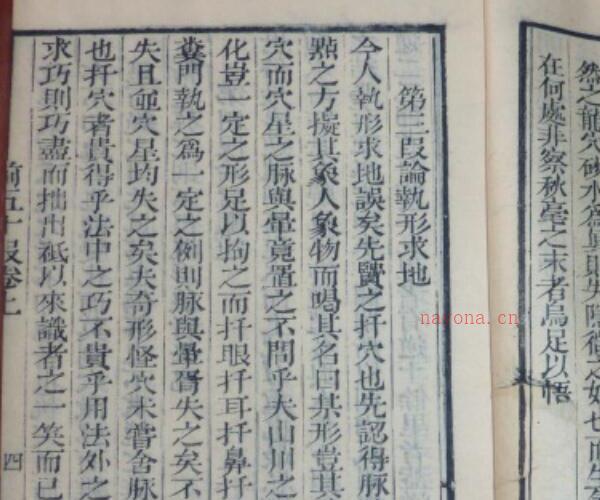 在何處非察秋毫之末者烏足以悟
第三段論執形求地
今人執形求地誤矣先賢之扦穴也先認得脉
點之方擬其象人象物而喝其名曰某形豈其
穴而穴星之脉與暈竟置之不問乎夫山川之
化豈一定之形足以拘之而扦眼扦耳扦鼻扦
糞門執之爲一定之例則脉與暈胥失之矣不
失且並穴星均失之矣夫奇形怪穴未嘗舍脉
也扦穴者貴得乎法中之巧不貴乎用法外之
求巧則巧盡而拙出祗以來識者之一笑而已
卷上
四
nayona.cn